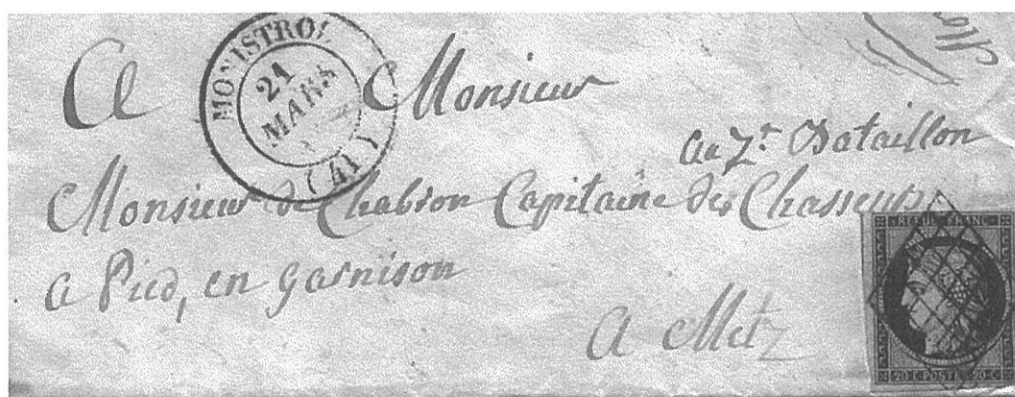 MONISTROL
21
MARS
(41)
A Monsieur
au 7e Bataillon
Monsieur de Chabron Capitaine des Chasseurs
a Pied, en garnison
A Metz
REPUB. FRANC.
20 C POSTES 20 C